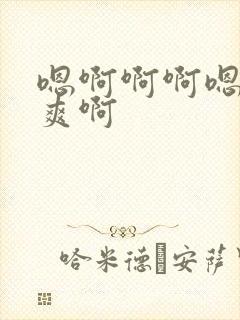 嗯啊啊啊嗯
爽啊
哈米德 安萨